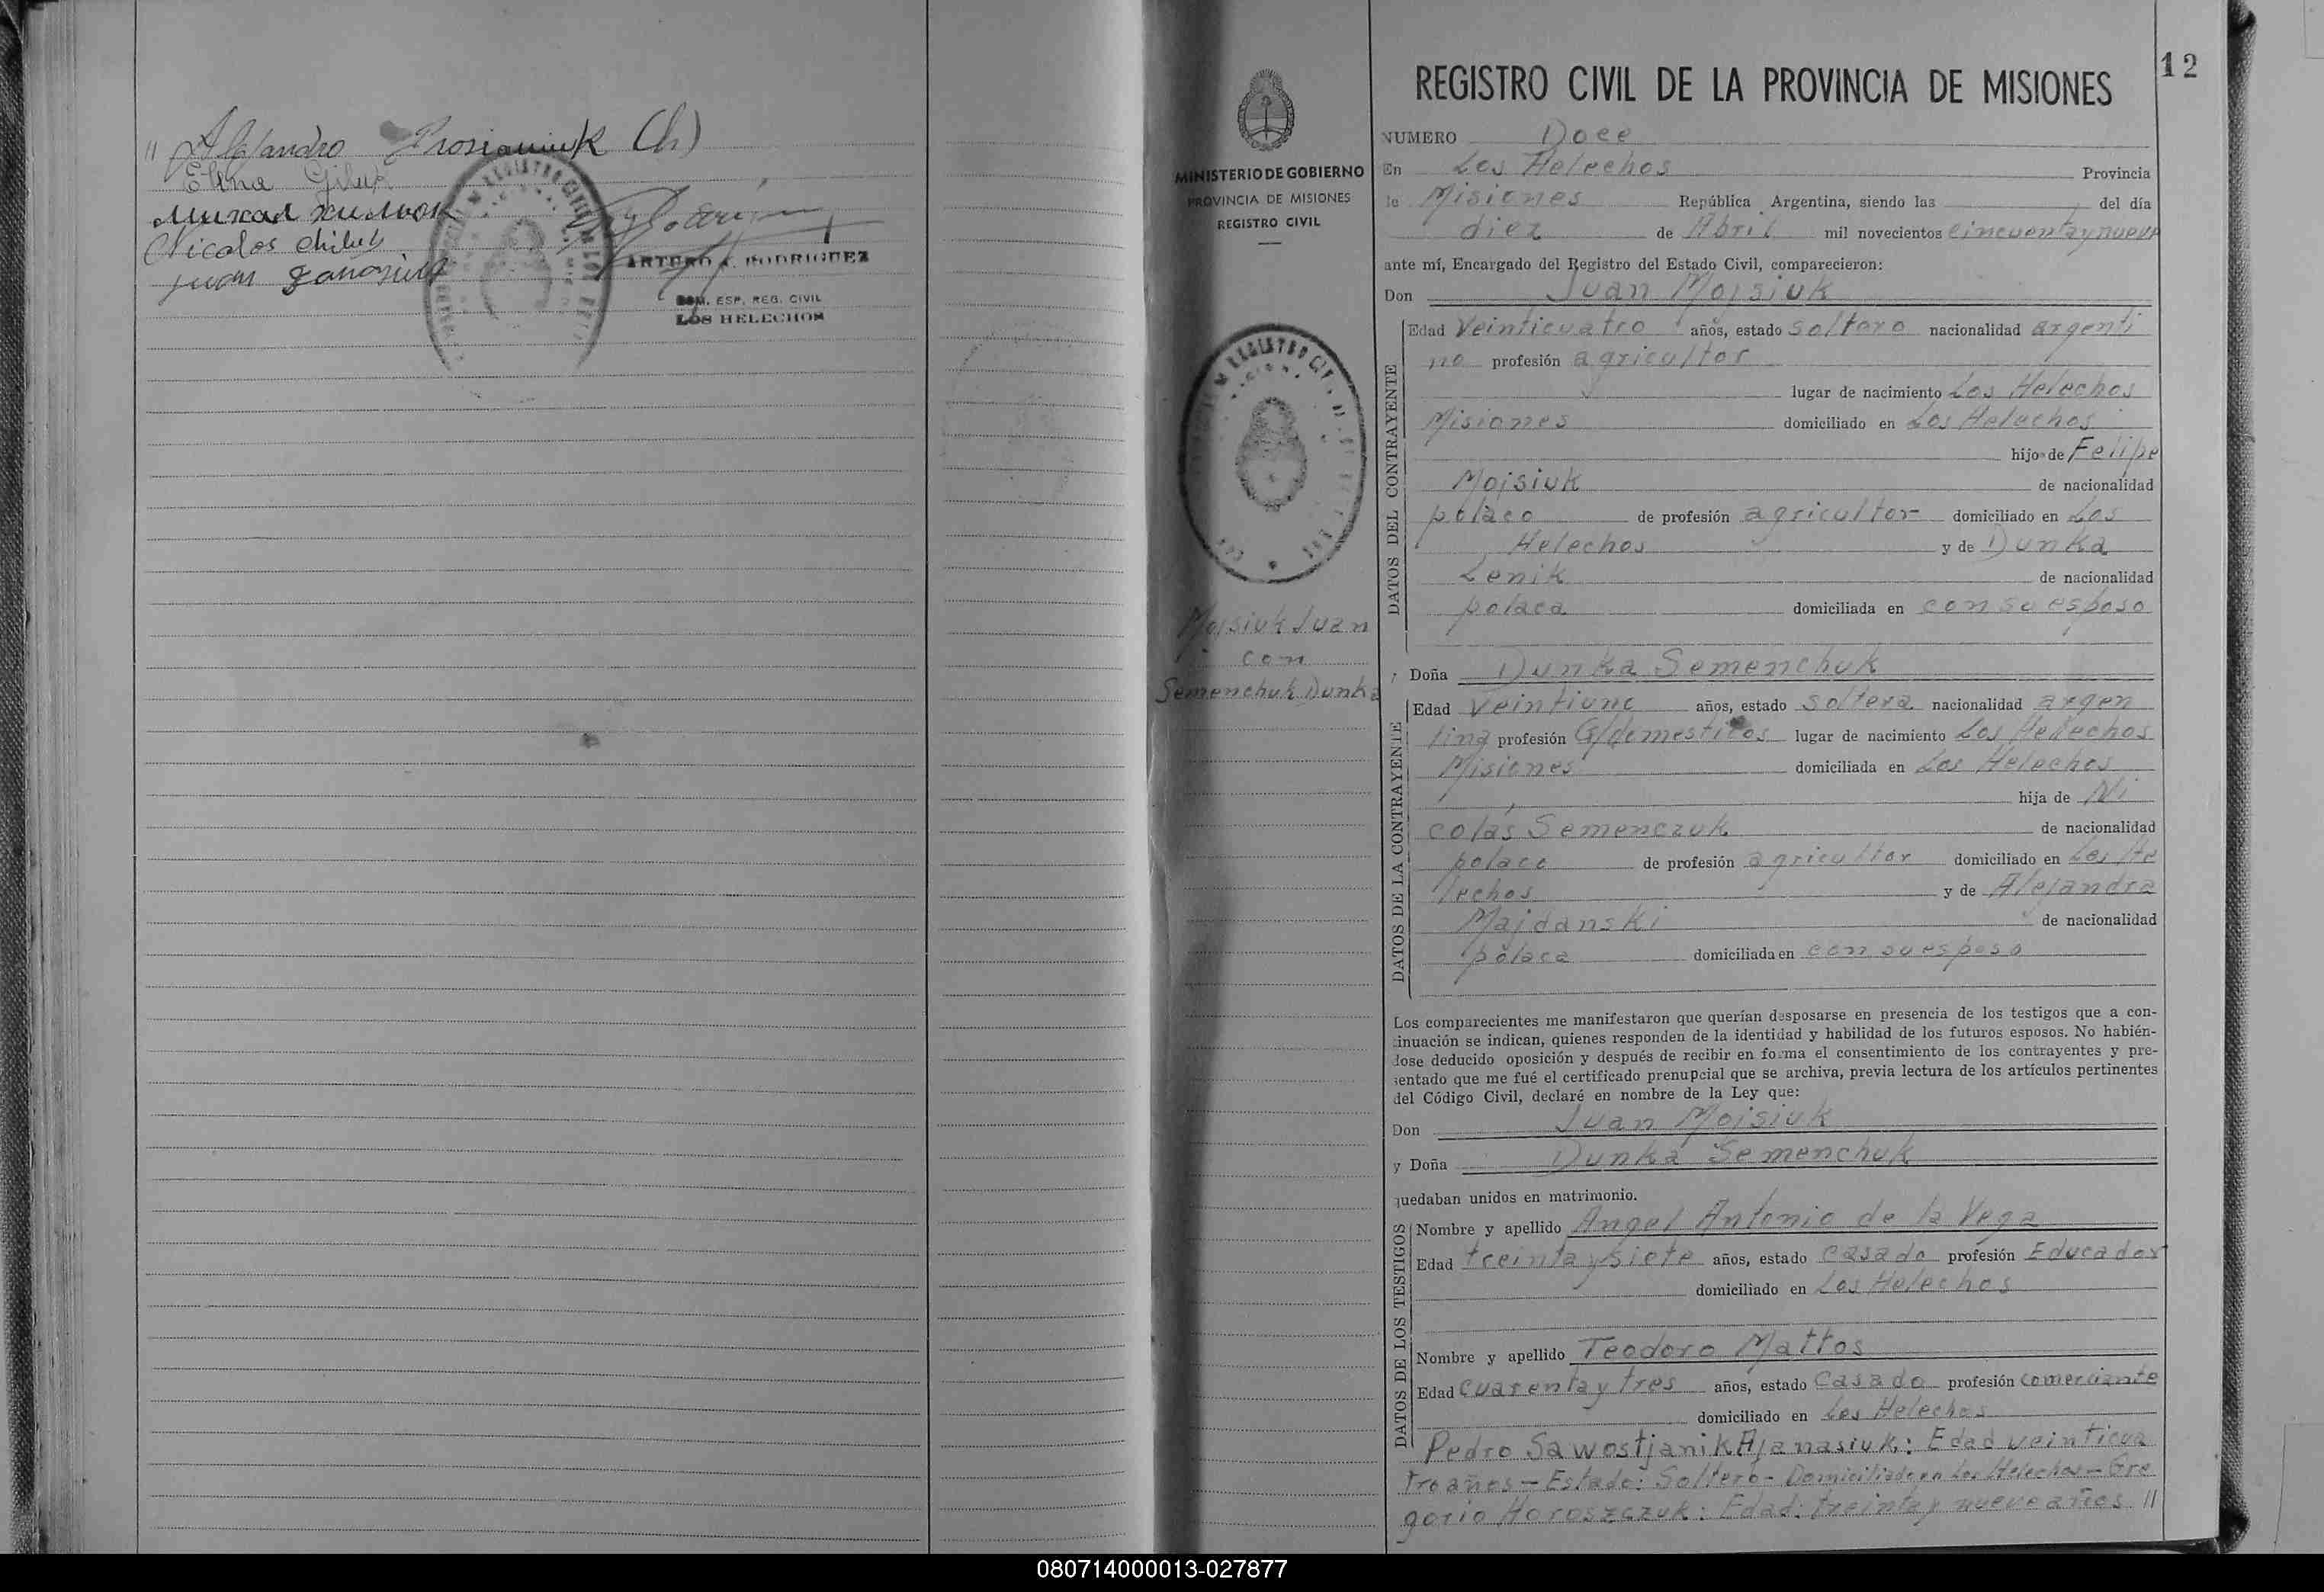 " Alejandro Prosianiuk (h)
Elena
Nicolas
Juan
ARTURO A. RODRIGUEZ
ESP. REG. CIVIL
LOS HELECHOS
MINISTERIO DE GOBIERNO
PROVINCIA DE MISIONES
REGISTRO CIVIL
Mojsiuk Juan
con
Semenchuk Dunka
12
REGISTRO CIVIL DE LA PROVINCIA DE MISIONES
NUMERO Doce
En Los Helechos Provincia
de Misiones República Argentina, siendo las del día
diez de Abril mil novecientos cincuenta y nueve
ante mí, Encargado del Registro del Estado Civil, comparecieron:
Don Juan Mojsiuk
DATOS DEL CONTRAYENTE
Edad Veinticuatro años, estado soltero nacionalidad argenti
no profesión agricultor
lugar de nacimiento Los Helechos
Misiones domiciliado en Los Helechos
hijo de Felipe
Mojsiuk de nacionalidad
polaco de profesión agricultor domiciliado en Los
Helechos y de Dunka
Lenik de nacionalidad
polaca domiciliada en con su esposo
y Doña Dunka Semenchuk
DATOS DE LA CONTRAYENTE
Edad Veintiuno años, estado soltera nacionalidad argen
tina profesión Q/domesticos lugar de nacimiento Los Helechos
Misiones domiciliada en Los Helechos
hija de Ni
colás Semenczuk de nacionalidad
polaco de profesión agricultor domiciliado en Los He
lechos y de Alejandra
Majdanski de nacionalidad
polaca domiciliada en con su esposo
Los comparecientes me manifestaron que querían desposarse en presencia de los testigos que a con-
tinuación se indican, quienes responden de la identidad y habilidad de los futuros esposos. No habién-
dose deducido oposición y después de recibir en forma el consentimiento de los contrayentes y pre-
sentado que me fué el certificado prenupcial que se archiva, previa lectura de los artículos pertinentes
del Código Civil, declaré en nombre de la Ley que:
Don Juan Mojsiuk
y Doña Dunka Semenchuk
quedaban unidos en matrimonio.
DATOS DE LOS TESTIGOS
Nombre y apellido Angel Antonio de la Vega
Edad treinta y siete años, estado casado profesión Educador
domiciliado en Los Helechos
Nombre y apellido Teodoro Mattos
Edad cuarenta y tres años, estado Casado profesión comerciante
domiciliado en Los Helechos
Pedro Sawostjanik Afanasiuk: Edad veinticua
tro años - Estado: Soltero - Domiciliado en Los Helechos - Gre
gorio Horoszczuk: Edad: treinta y nueve años "
080714000013-027877